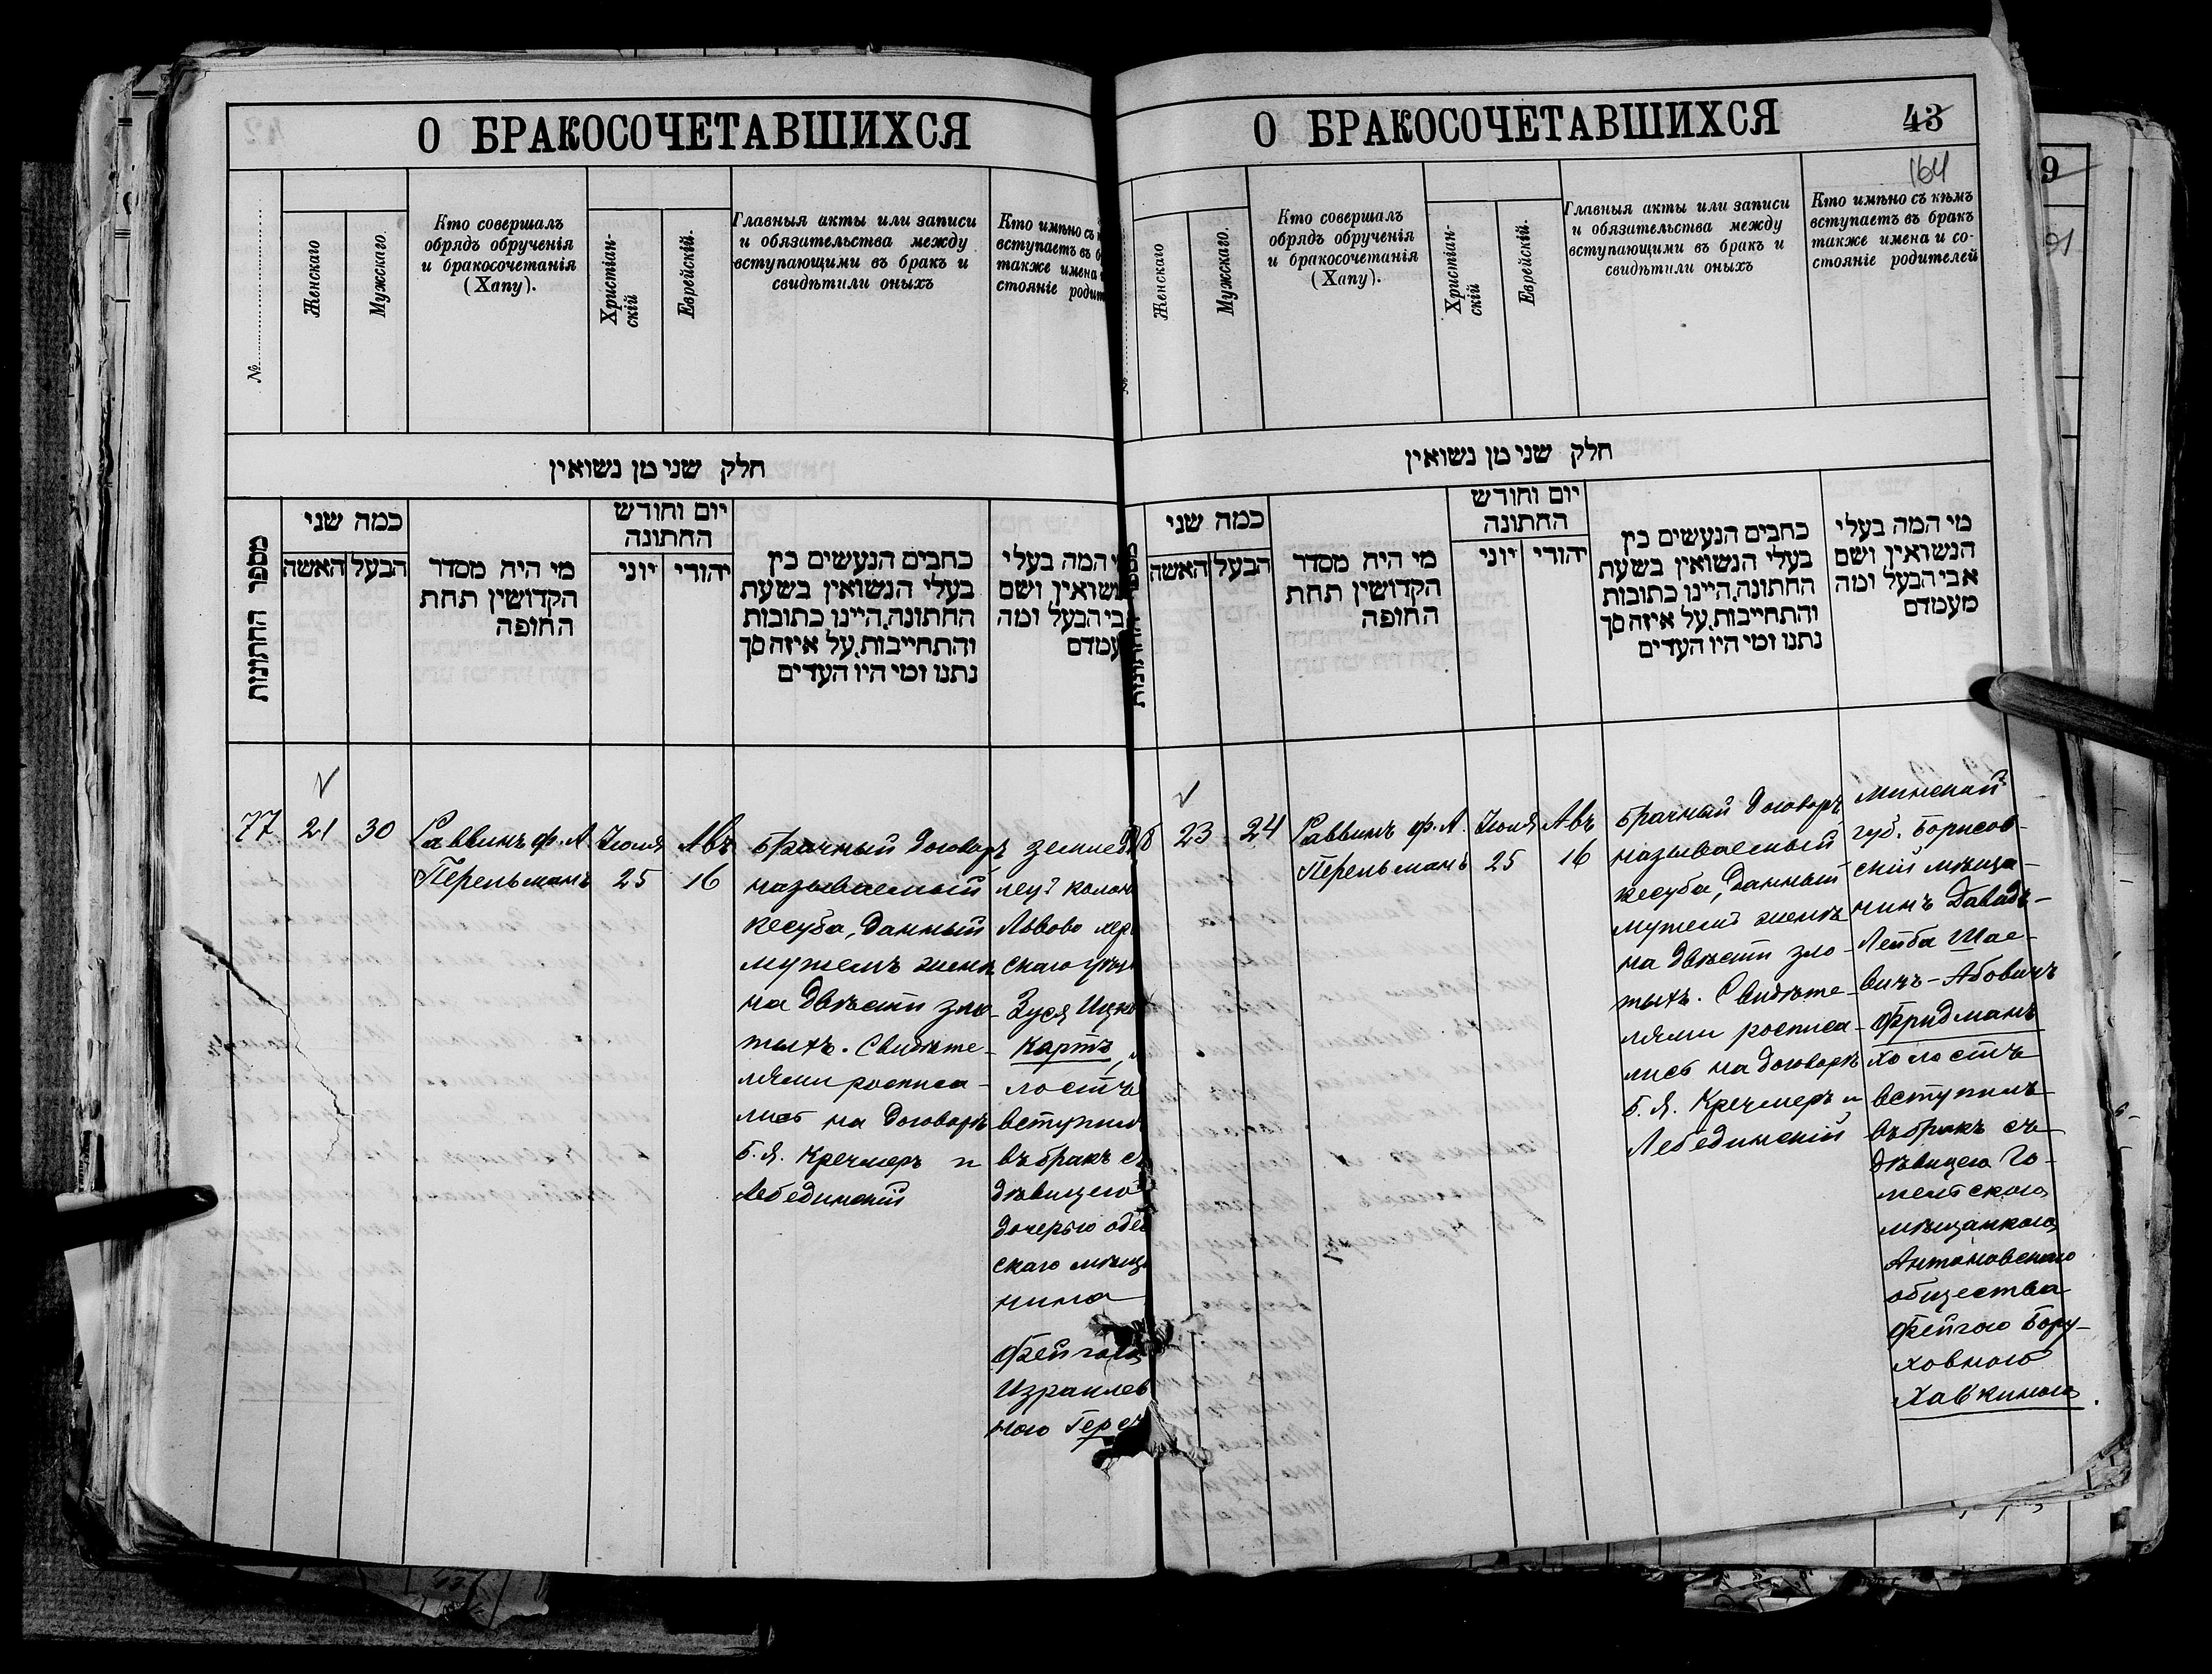 О БРАКОСОЧЕТАВШИХСЯ
№
Женскаго
Мужскаго.
Кто совершалъ
обрядъ обрученія
и бракосочетанія
(Хапу).
Христіан-
скій
Еврейскій.
Главныя акты или записи
и обязательства между
вступающими въ бракъ и
свидѣтили оныхъ
Кто имѣно съ
вступаетъ въ
также имена
стояніе
חלק שני מן נשואין
מספר החתונות
כמה שני
הבעל האשה
מי היה מסדר
הקדושין תחת
החופה
יום וחודש
החתונה
יהודי יוני
כתבים הנעשים בין
בעלי הנשואין בשעת
החתונה, היינו כתובות
והתחייבות, על איזה סך
נתנו ומי היו העדים
המה בעלי
ושם
הבעל ומה
77
21
30
Раввинъ Ф. А.
Перельманъ
Іюля
25
Авъ
16
Брачный договоръ
называемый
кесуба, данный
мужемъ женѣ
на двѣсти зло-
тыхъ. Свидѣте-
лями росписа-
лись на договорѣ
Б. Я. Кречмеръ и
Лебединскій
Львово
скаго
Зуся
Картъ,
лостъ
вступилъ
въ бракъ
дѣвицею
дочерью
скаго
нина
Фейгою
Израилев
ною
О БРАКОСОЧЕТАВШИХСЯ
43
164
Женскаго
Мужскаго.
Кто совершалъ
обрядъ обрученія
и бракосочетанія
(Хапу).
Христіан-
скій
Еврейскій.
Главныя акты или записи
и обязательства между
вступающими въ бракъ и
свидѣтили оныхъ
Кто имѣно съ кѣмъ
вступаетъ въ бракъ
также имена и со-
стояніе родителей
חלק שני מן נשואין
כמה שני
הבעל האשה
מי היה מסדר
הקדושין תחת
החופה
יום וחודש
החתונה
יהודי יוני
כתבים הנעשים בין
בעלי הנשואין בשעת
החתונה, היינו כתובות
והתחייבות, על איזה סך
נתנו ומי היו העדים
מי המה בעלי
הנשואין ושם
אבי הבעל ומה
מעמדם
23
24
Раввинъ Ф. А.
Перельманъ
Іюля
25
Авъ
16
Брачный договоръ
называемый
кесуба, данный
мужемъ женѣ
на двѣсти зло-
тыхъ. Свидѣте-
лями росписа-
лись на договорѣ
Б. Я. Кречмеръ и
Лебединскій
Минской
губ. Борисов-
скій мѣща-
нинъ Давидъ-
Лейба Шае-
вичъ-Абовичъ
Фридманъ
холостъ
вступилъ
въ бракъ съ
дѣвицею Го-
мельскою
мѣщанкою
Антоновскаго
общества
Фейгою Бору-
ховною
Хавкиною.
9